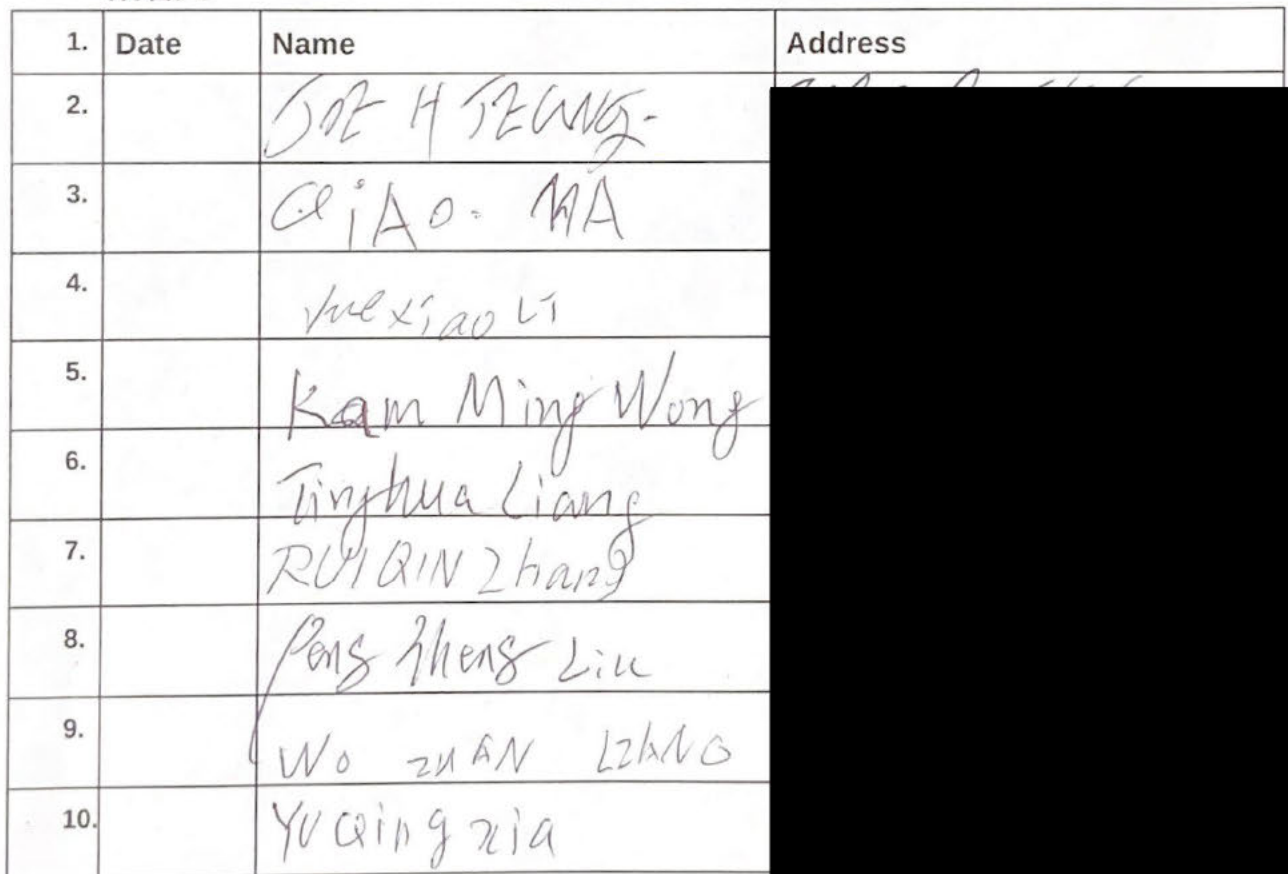 1. Date Name Address
2. JOE H JEUNG-
3. QiAO. MA
4. Yuexiao Li
5. Kam Ming Wong
6. Tinghua Liang
7. RUIQIN Zhang
8. Peng Zheng Liu
9. Wo ZUAN
10. YU Qing xia